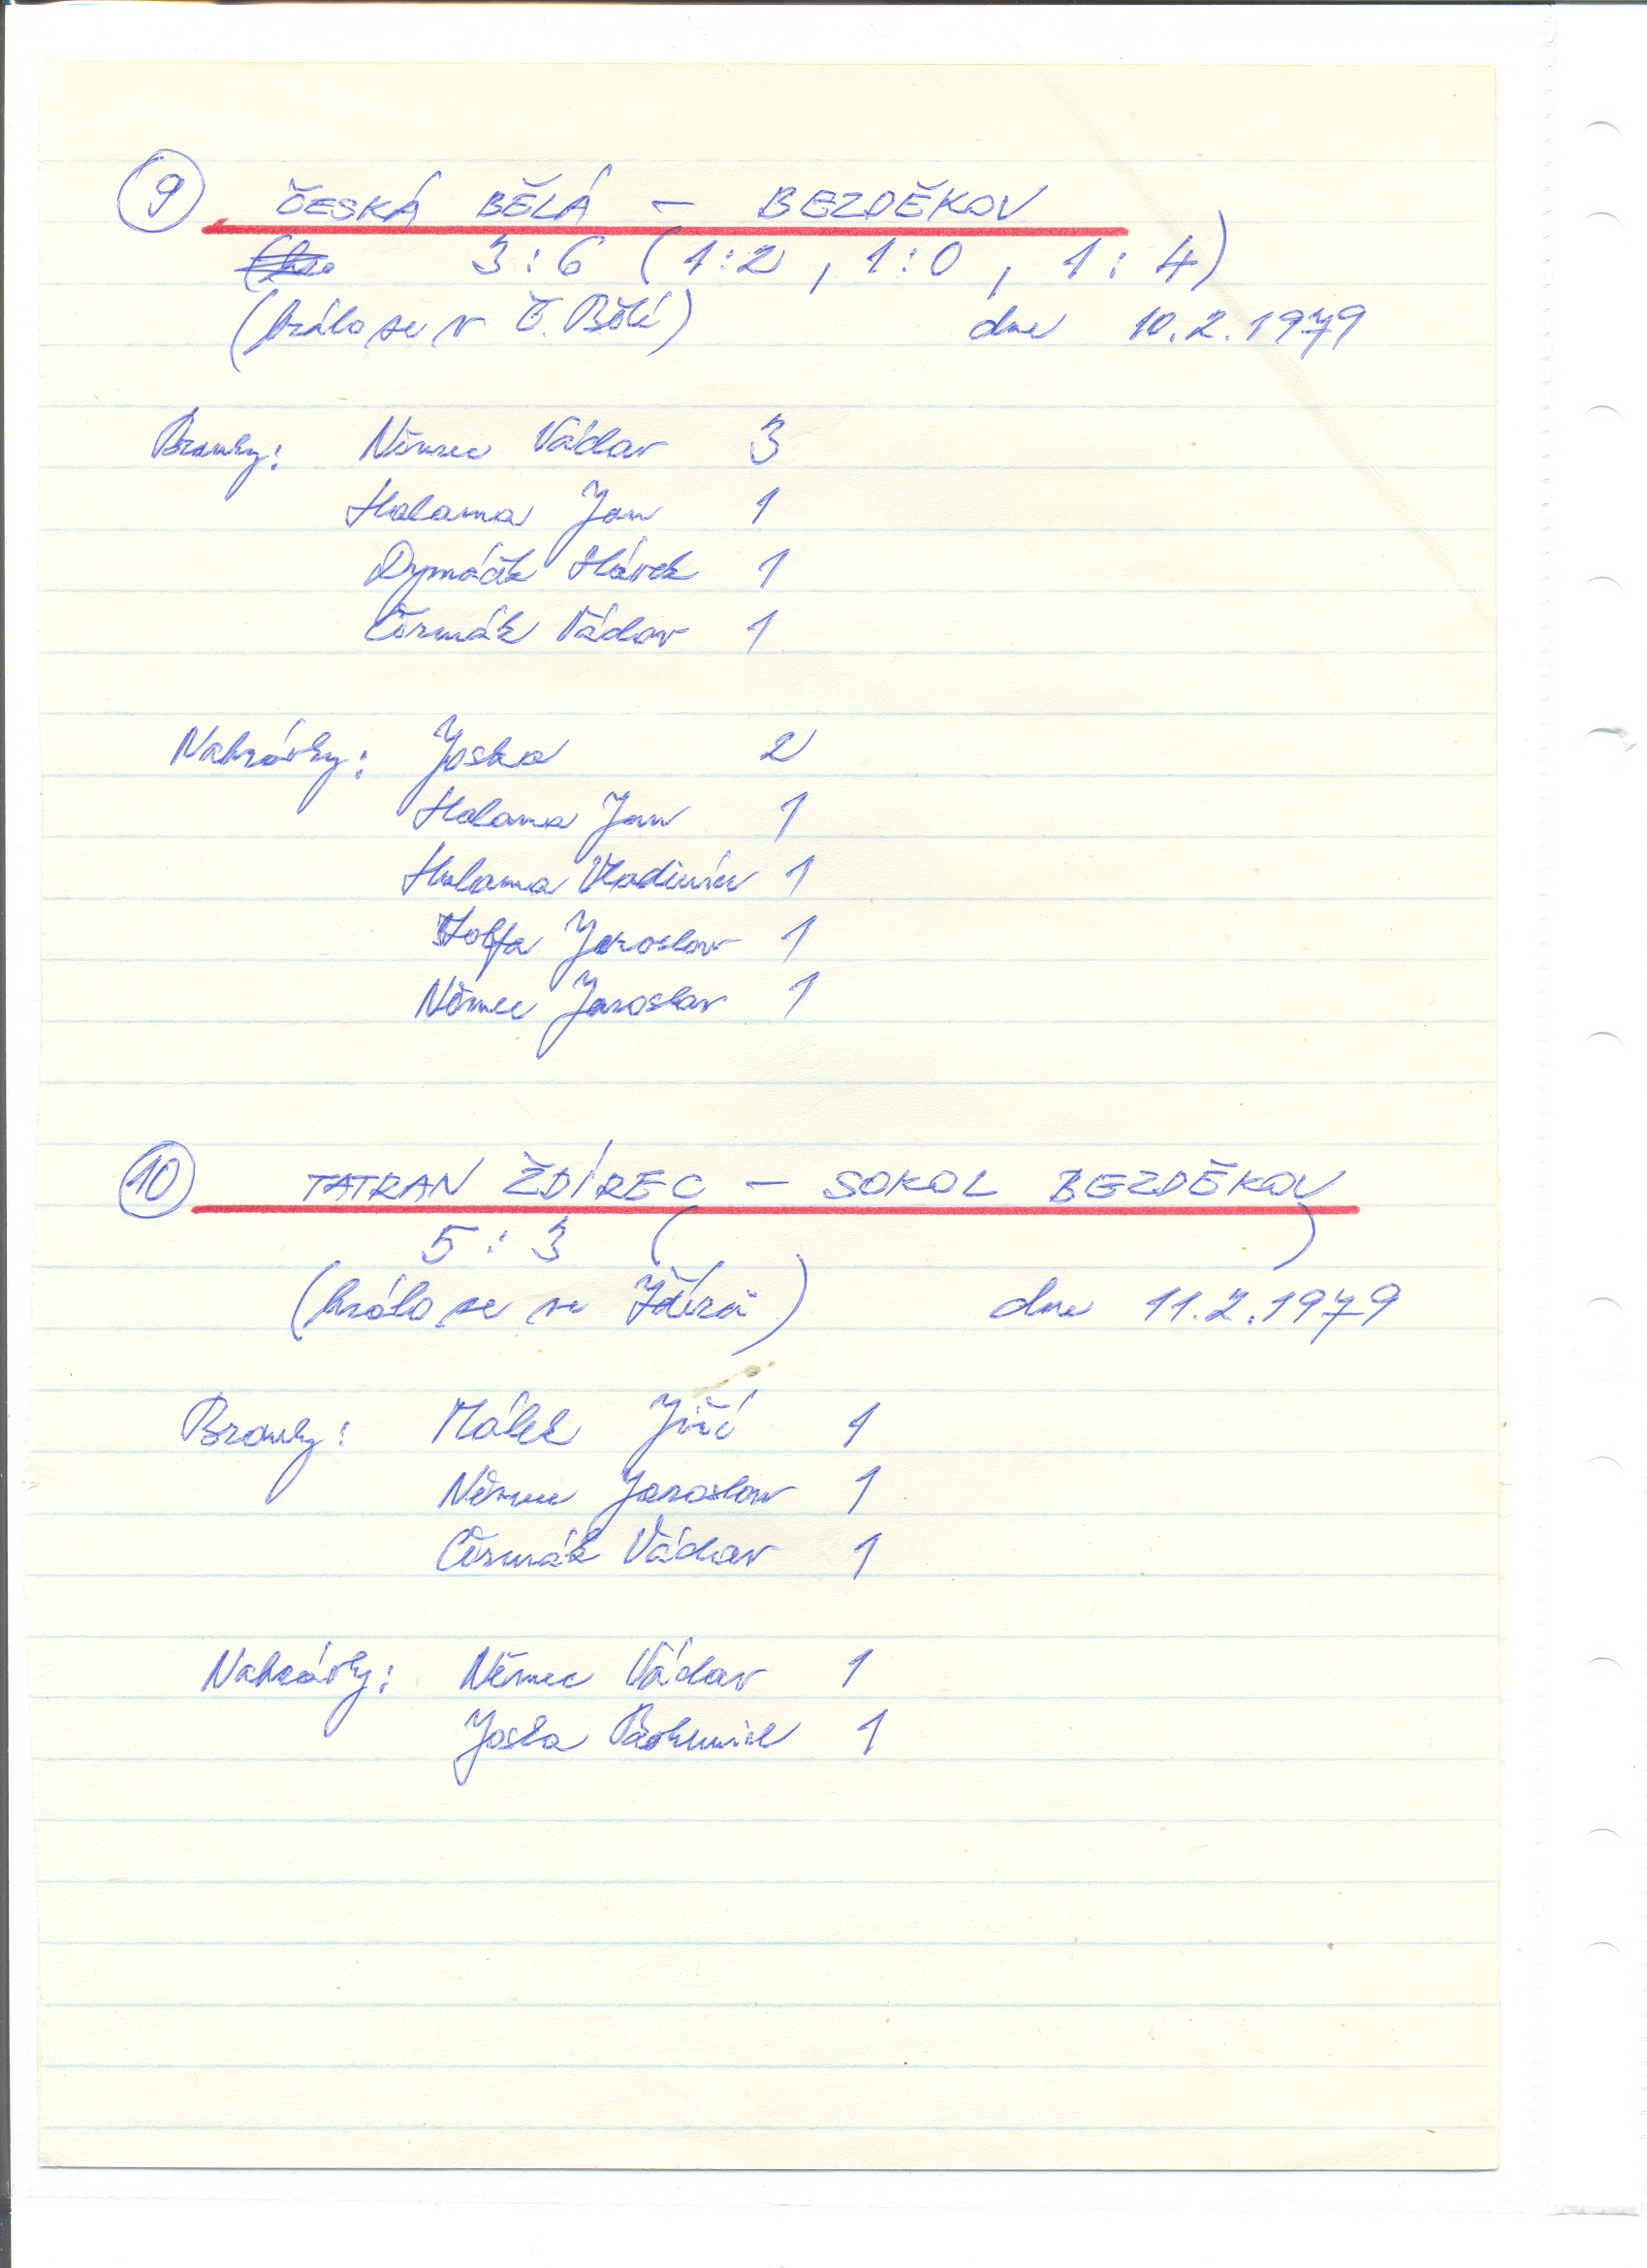 9 ČESKÁ BĚLÁ - BEZDĚKOV
3:6 (1:2, 1:0, 1:4)
(hrálo se v Č. Bělé) dne 10.2.1979
Branky: Němec Václav 3
Halama Jan 1
Slávek 1
Čermák Václav 1
Nahrávky: Joska 2
Halama Jan 1
Halama Vladimír 1
Jaroslav 1
Němec Jaroslav 1
10 TATRAN ŽDÍREC - SOKOL BEZDĚKOV
5:3 ( )
(hrálo se ve Ždírci) dne 11.2.1979
Branky: Málek Jiří 1
Němec Jaroslav 1
Čermák Václav 1
Nahrávky: Němec Václav 1
Joska Bohumil 1